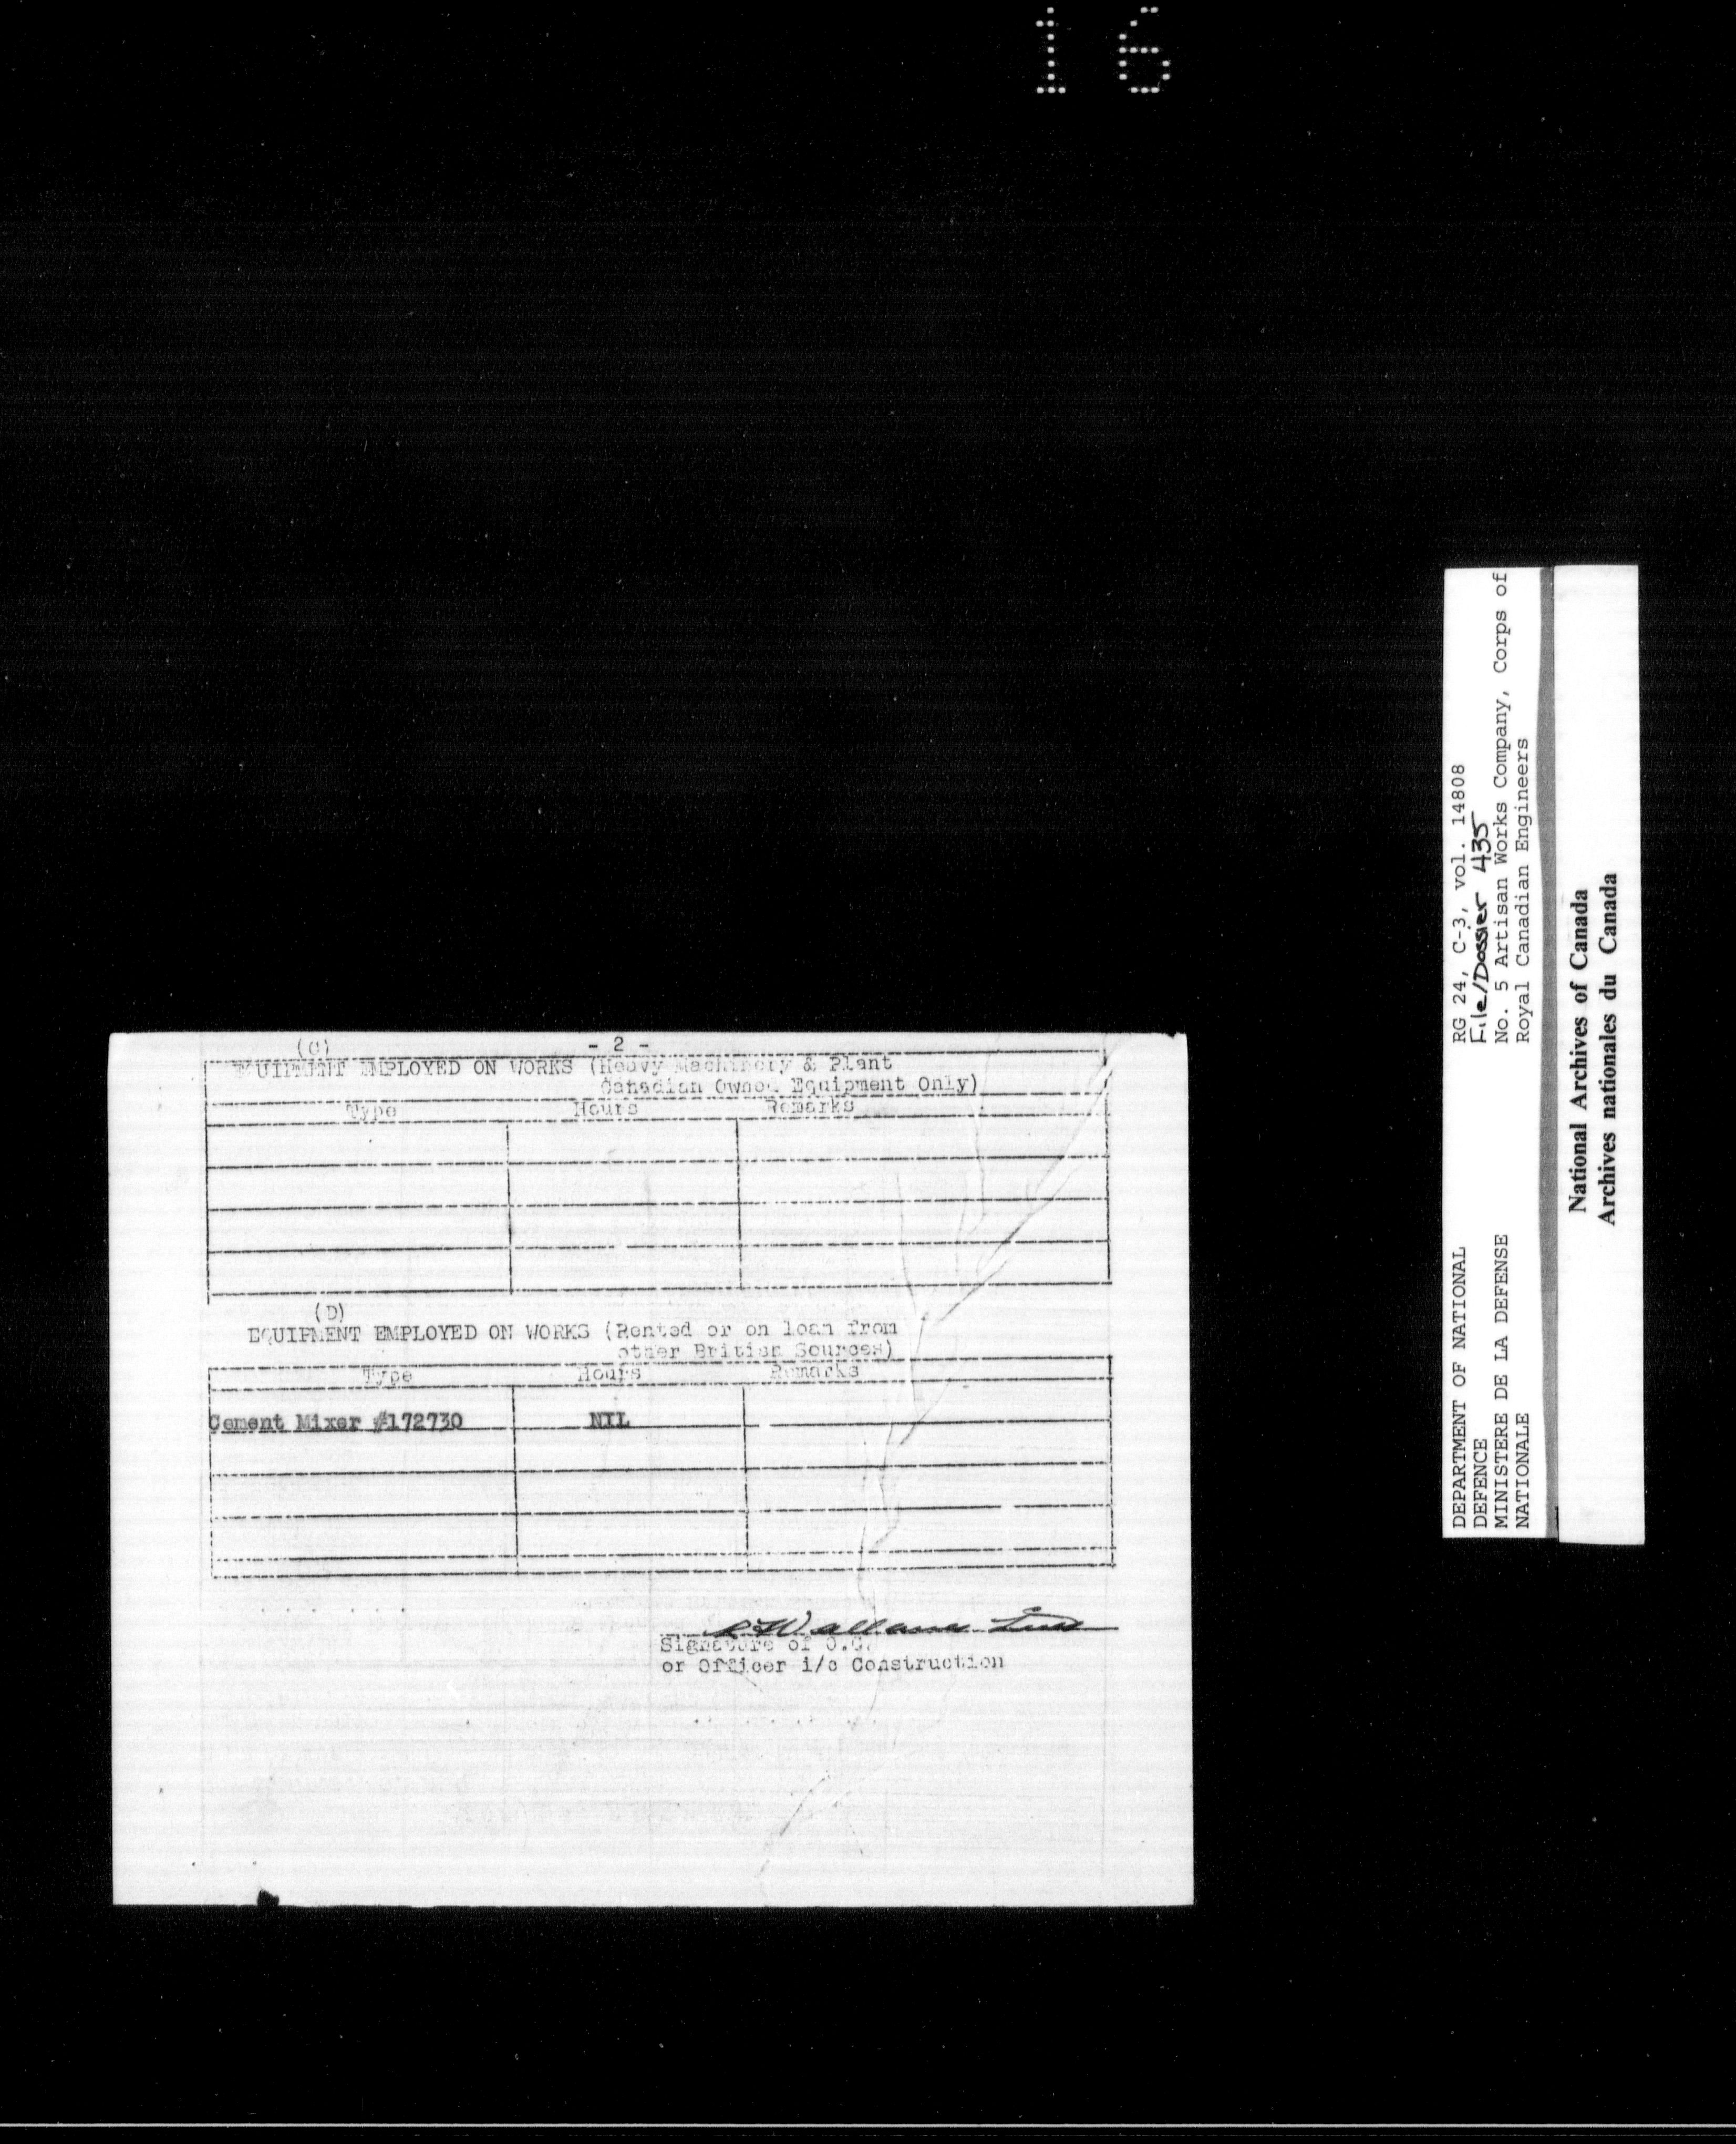 16
- 2 -
(C)
EQUIPMENT EMPLOYED ON WORKS (Heavy Machinery & Plant
Canadian Owned Equipment Only)
Type Hours Remarks
(D)
EQUIPMENT EMPLOYED ON WORKS (Rented or on loan from
other British Sources)
Type Hours Remarks
Cement Mixer #172730 NIL
Signature of O.C.
or Officer i/c Construction
DEPARTMENT OF NATIONAL RG 24, C-3, vol. 14808
DEFENCE File/Dossier 435
MINISTERE DE LA DEFENSE No. 5 Artisan Works Company, Corps of
NATIONALE Royal Canadian Engineers
National Archives of Canada
Archives nationales du Canada